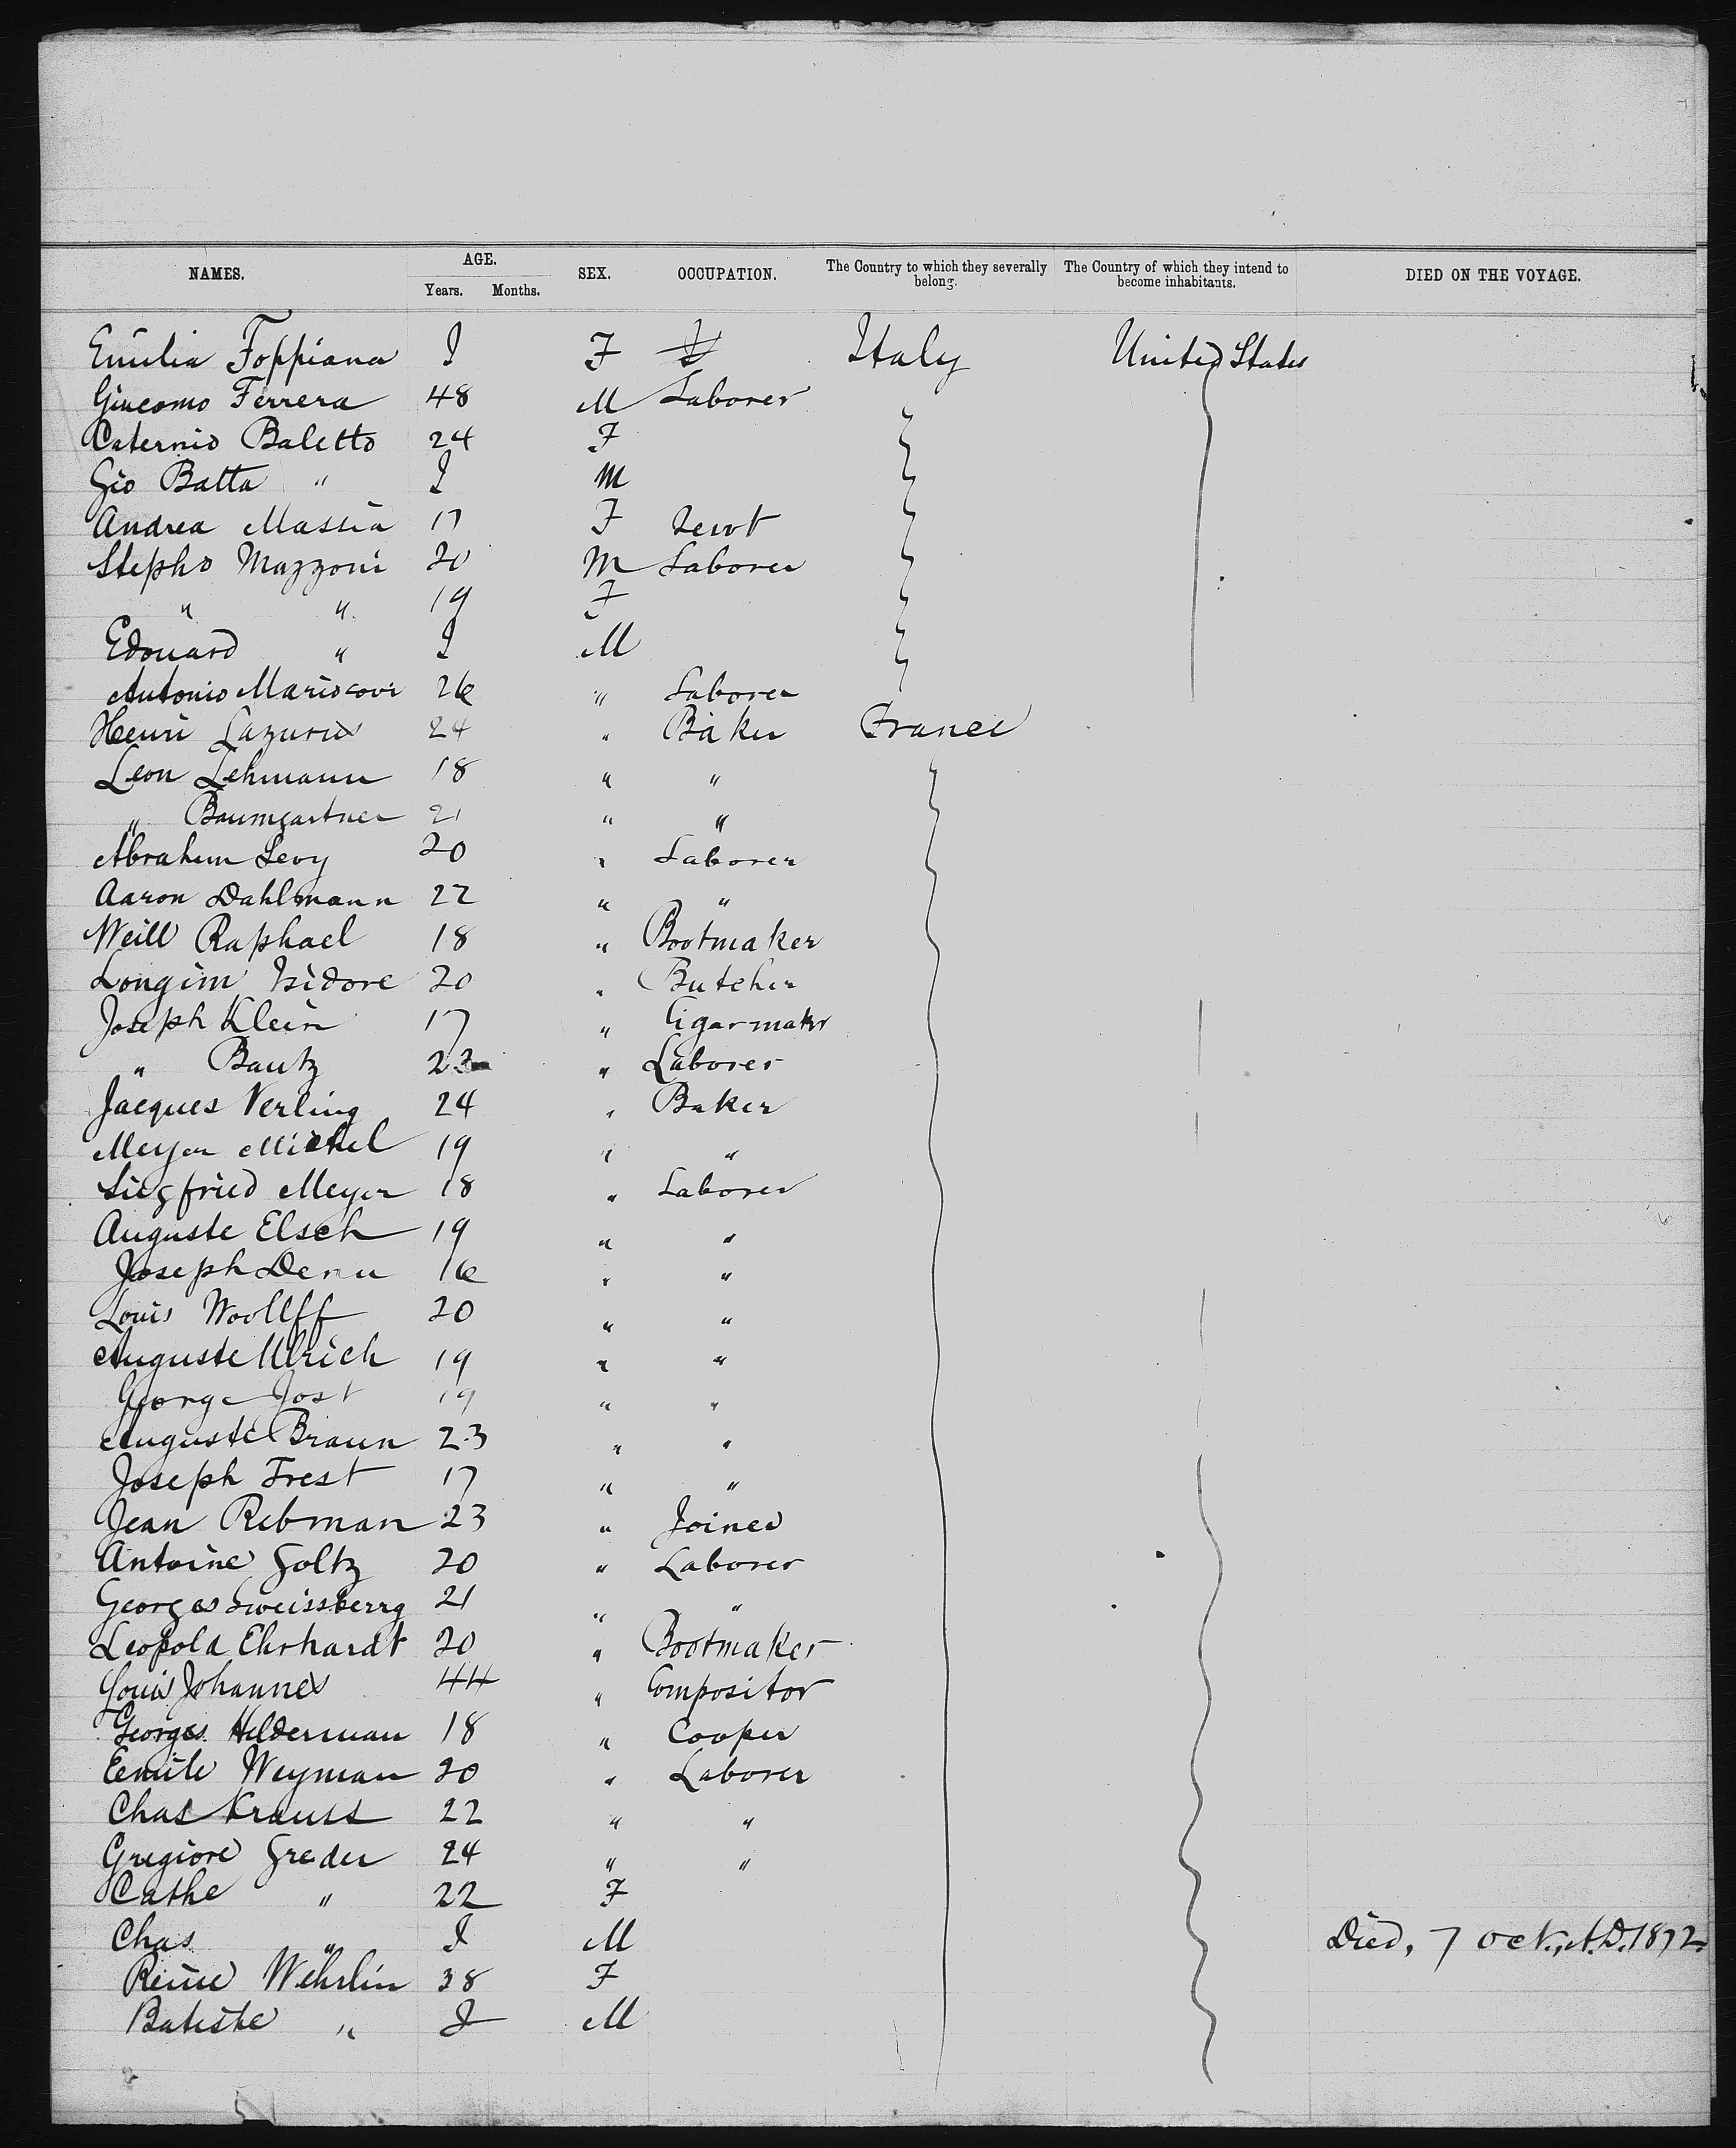 NAMES. AGE. SEX. OCCUPATION. The Country to which they severally belong. The Country of which they intend to become inhabitants. DIED ON THE VOYAGE.
Years. Months.
Emilia Foppiana I F Italy United States
Giacomo Ferrera 48 M Laborer
Caternio Baletto 24 F
Gio Batta " I M
Andrea Massia 17 F Servt
Stepho Mazzoni 20 M Laborer
" " 19 F
Edouard " I M
Antonio Mariscovi 26 " Laborer
Henri Lazurus 24 " Baker France
Leon Lehmann 18 " "
" Baumgartner 21 " "
Abraham Levy 20 " Laborer
Aaron Dahlmann 22 " "
Weill Raphael 18 " Bootmaker
Longim Isidore 20 " Butcher
Joseph Klein 17 " Cigarmakr
" Bautz 23 " Laborer
Jacques Verling 24 " Baker
Meyer Michel 19 " "
Siegfried Meyer 18 " Laborer
Auguste Elsch 19 " "
Joseph Denu 16 " "
Louis Woollff 20 " "
Auguste Ulrich 19 " "
George Jost 19 " "
Auguste Braun 23 " "
Joseph Frest 17 " "
Jean Rebman 23 " Joiner
Antoine Goltz 20 " Laborer
Georges Sweissberrg 21 " "
Leopold Ehrhardt 20 " Bootmaker
Louis Johannes 44 " Compositor
Georges Helderman 18 " Cooper
Eemile Weyman 20 " Laborer
Chas Krauss 22 " "
Gregiore Greder 24 " "
Cathe " 22 F
Chas " I M Died, 7 Oct., A.D. 1872.
Reine Wehrlin 38 F
Batiste " I M